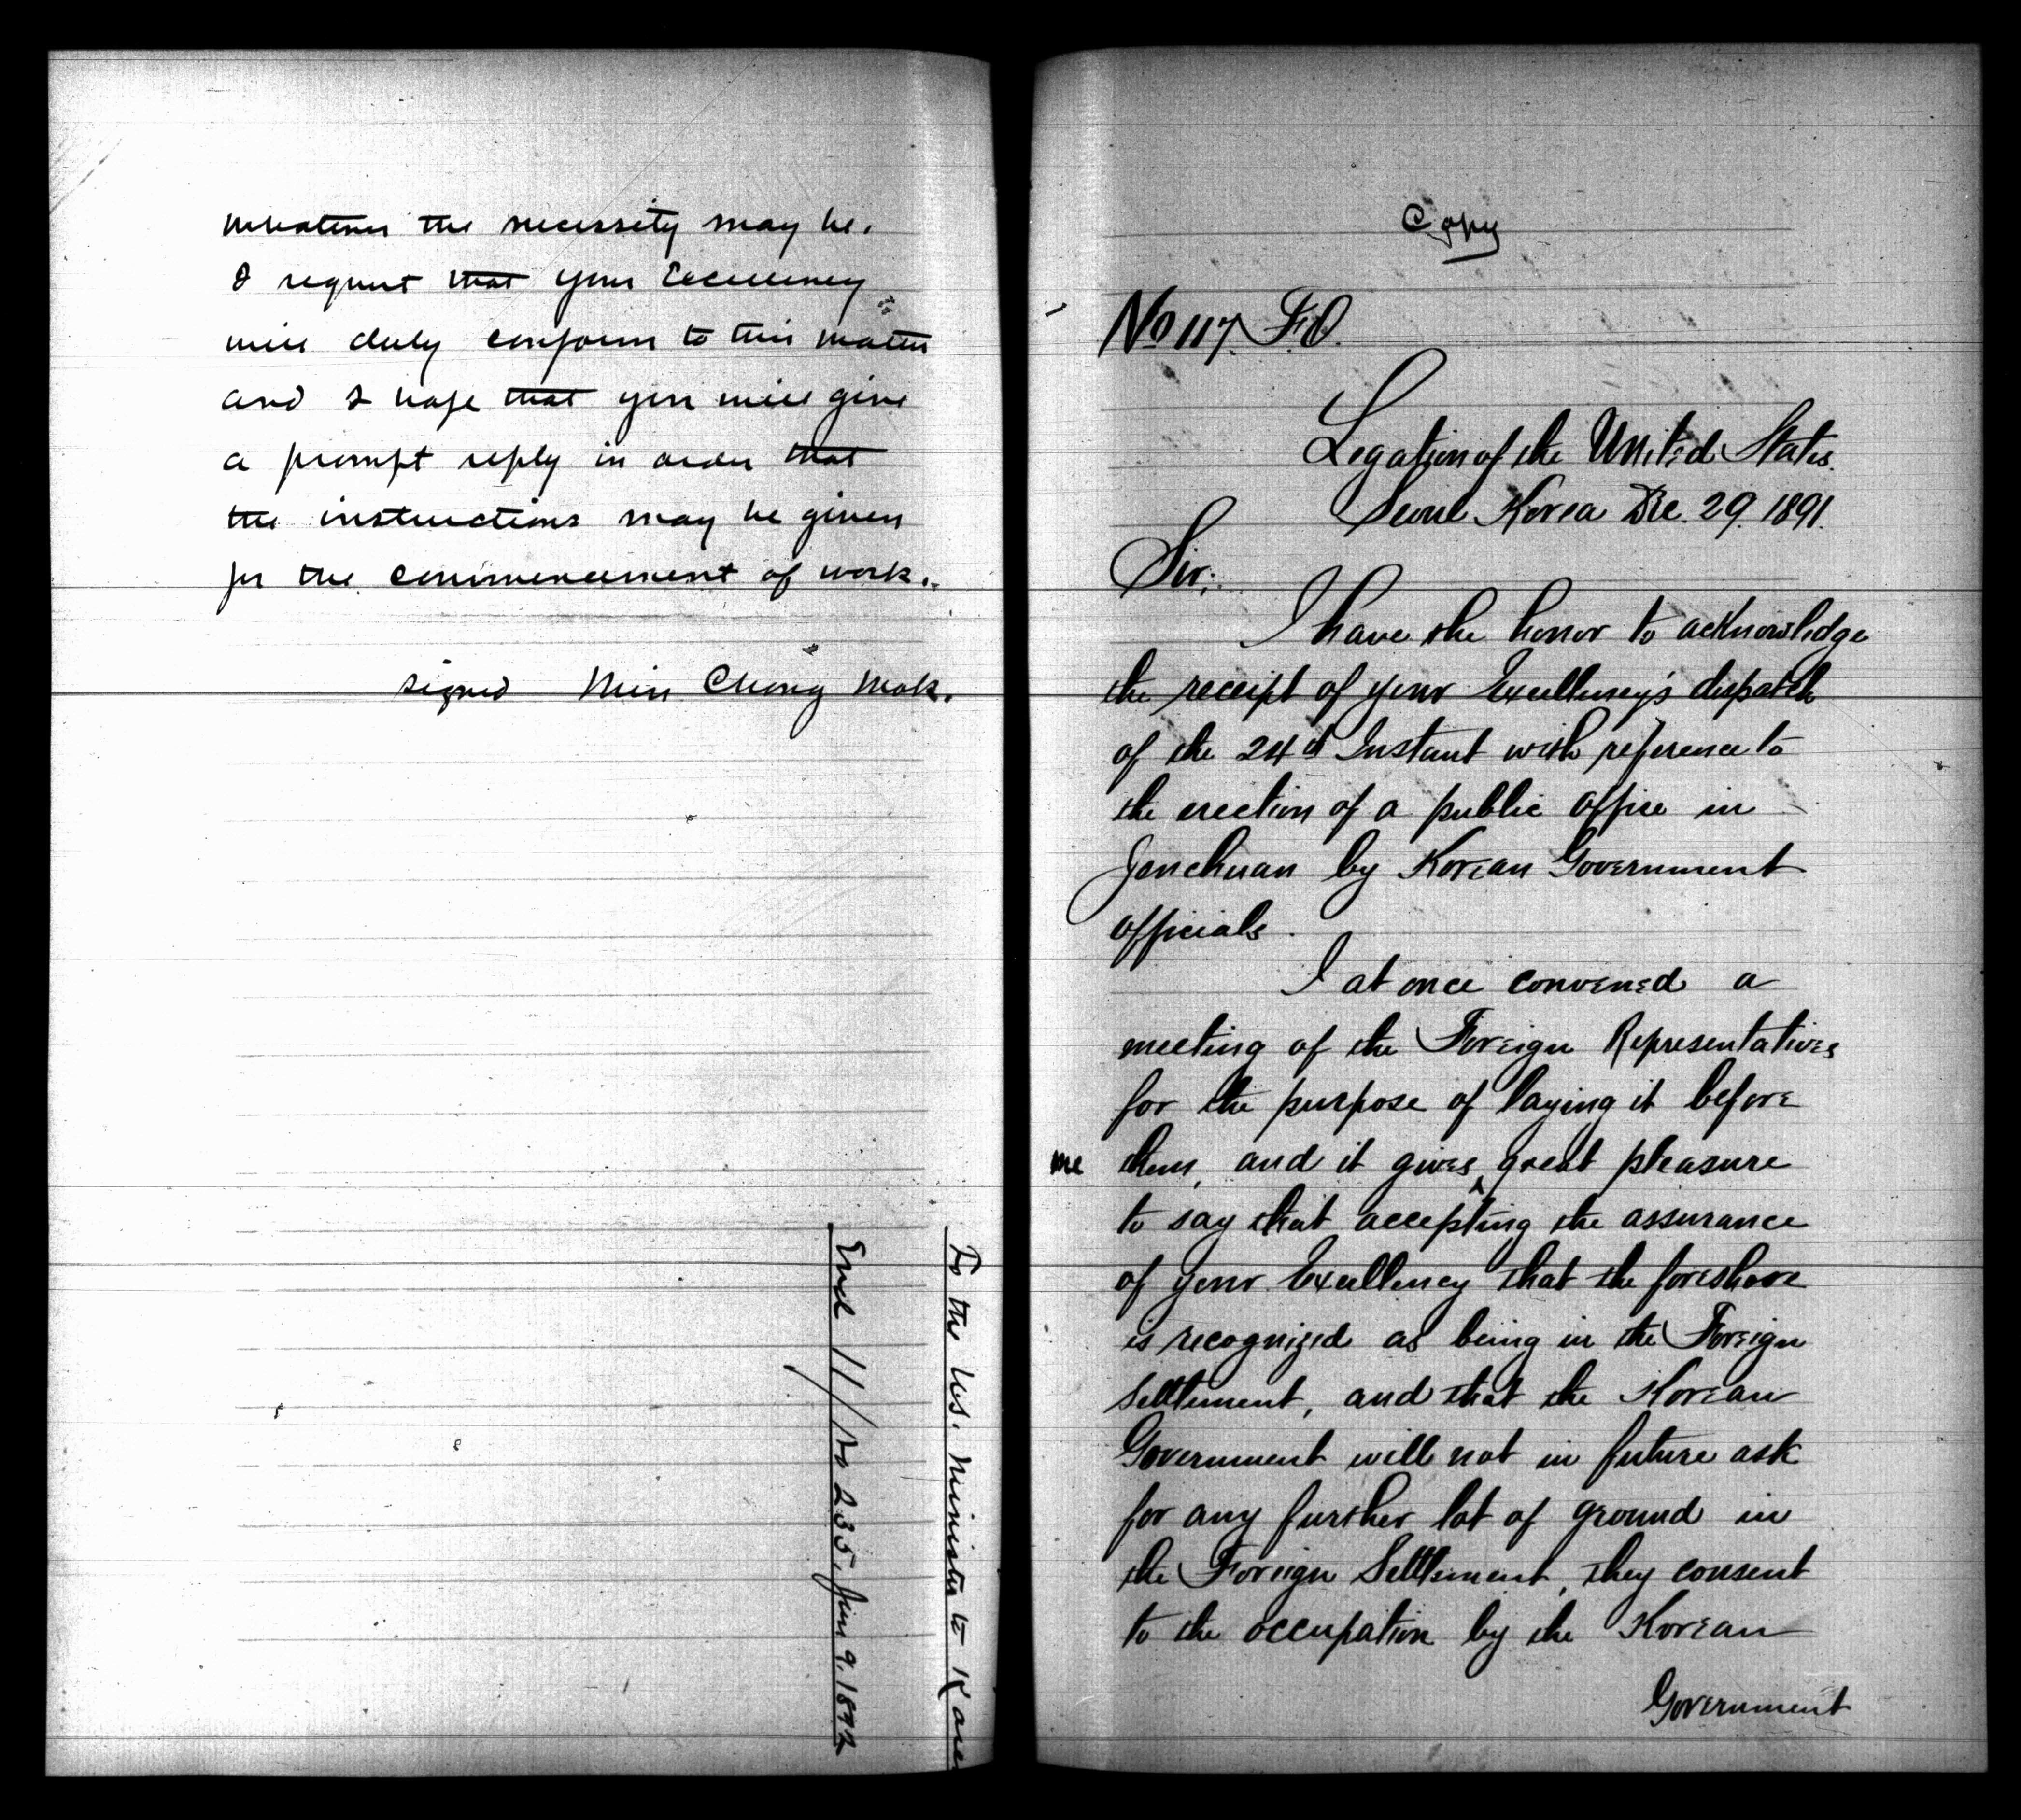 whatever the necessity may be.
I request that your Excellency
will duly conform to this matter
and I hope that you will give
a prompt reply in order that
the instructions may be given
for the commencement of work.
signed Min Chong Mok.
To the U.S. Minister to Korea
Encl 11/No 235. Jan 9. 1892
Copy
No 117. F.O.
Legation of the United States.
Seoul Korea Dec. 29. 1891.
Sir:
I have the honor to acknowledge
the receipt of your Excellency's dispatch
of the 24th Instant with reference to
the erection of a public office in
Jenchuan by Korean Government
officials.
I at once convened a
meeting of the Foreign Representatives
for the purpose of laying it before
them, and it gives me great pleasure
to say that accepting the assurance
of your Excellency that the foreshore
is recognized as being in the Foreign
Settlement, and that the Korean
Government will not in future ask
for any further lot of ground in
the Foreign Settlement, they consent
to the occupation by the Korean
Government